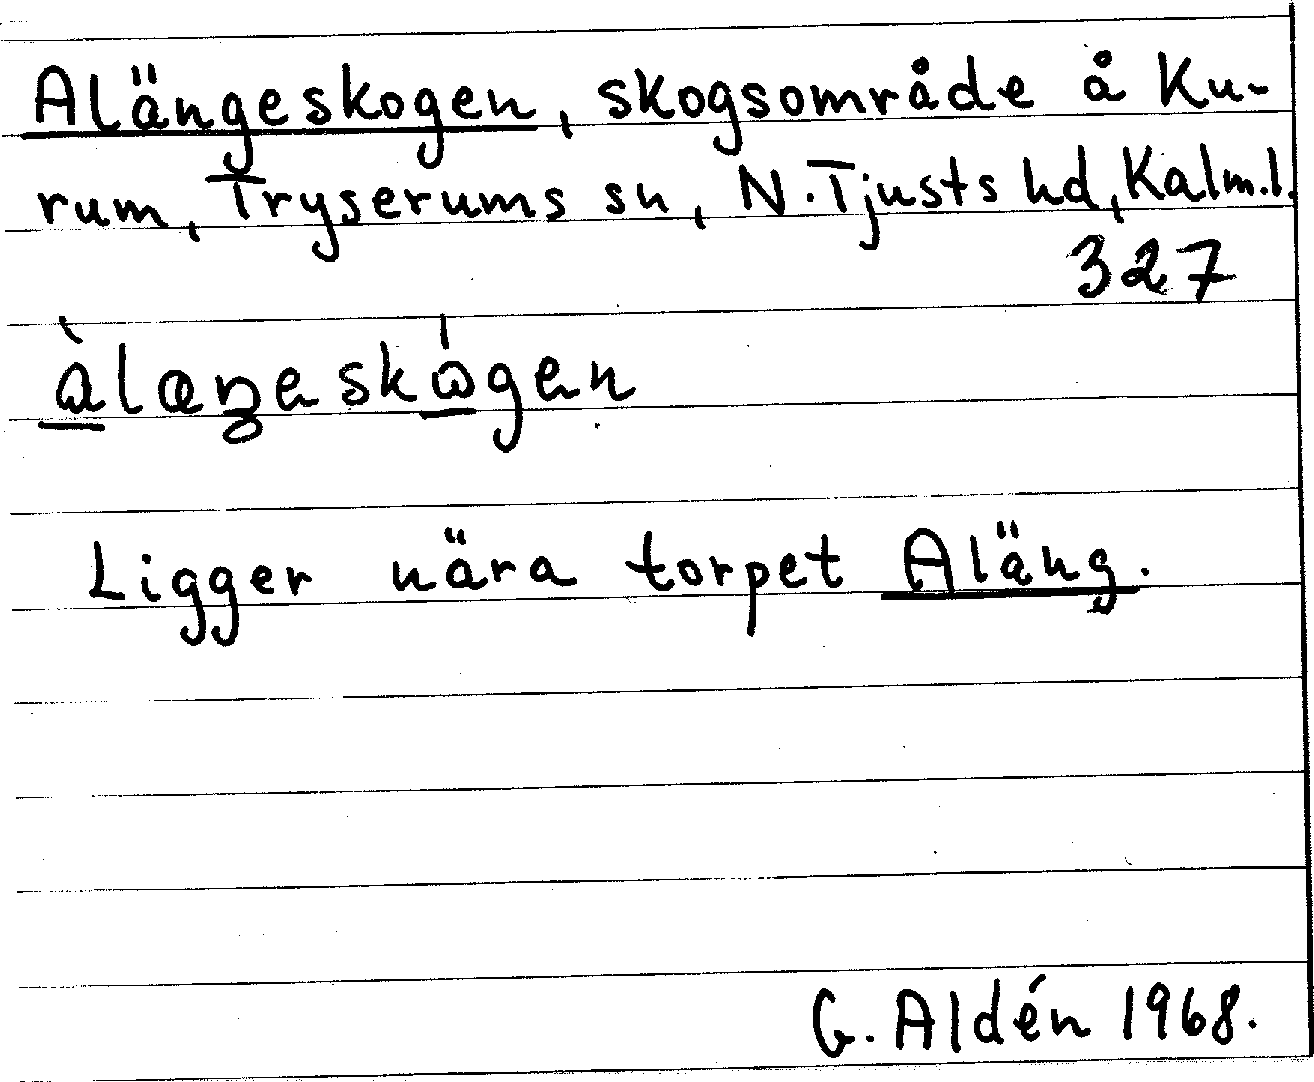 Alängeskogen, skogsområde å Ku-
rum, Tryserums sn, N. Tjusts hd, Kalm.l.
327
Ligger nära torpet Aläng.
G. Aldén 1968.